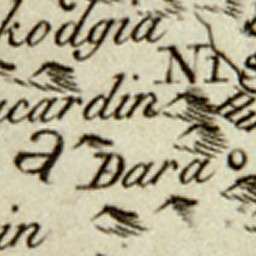 kodgia
Nis
ucardin
a
Dara
in